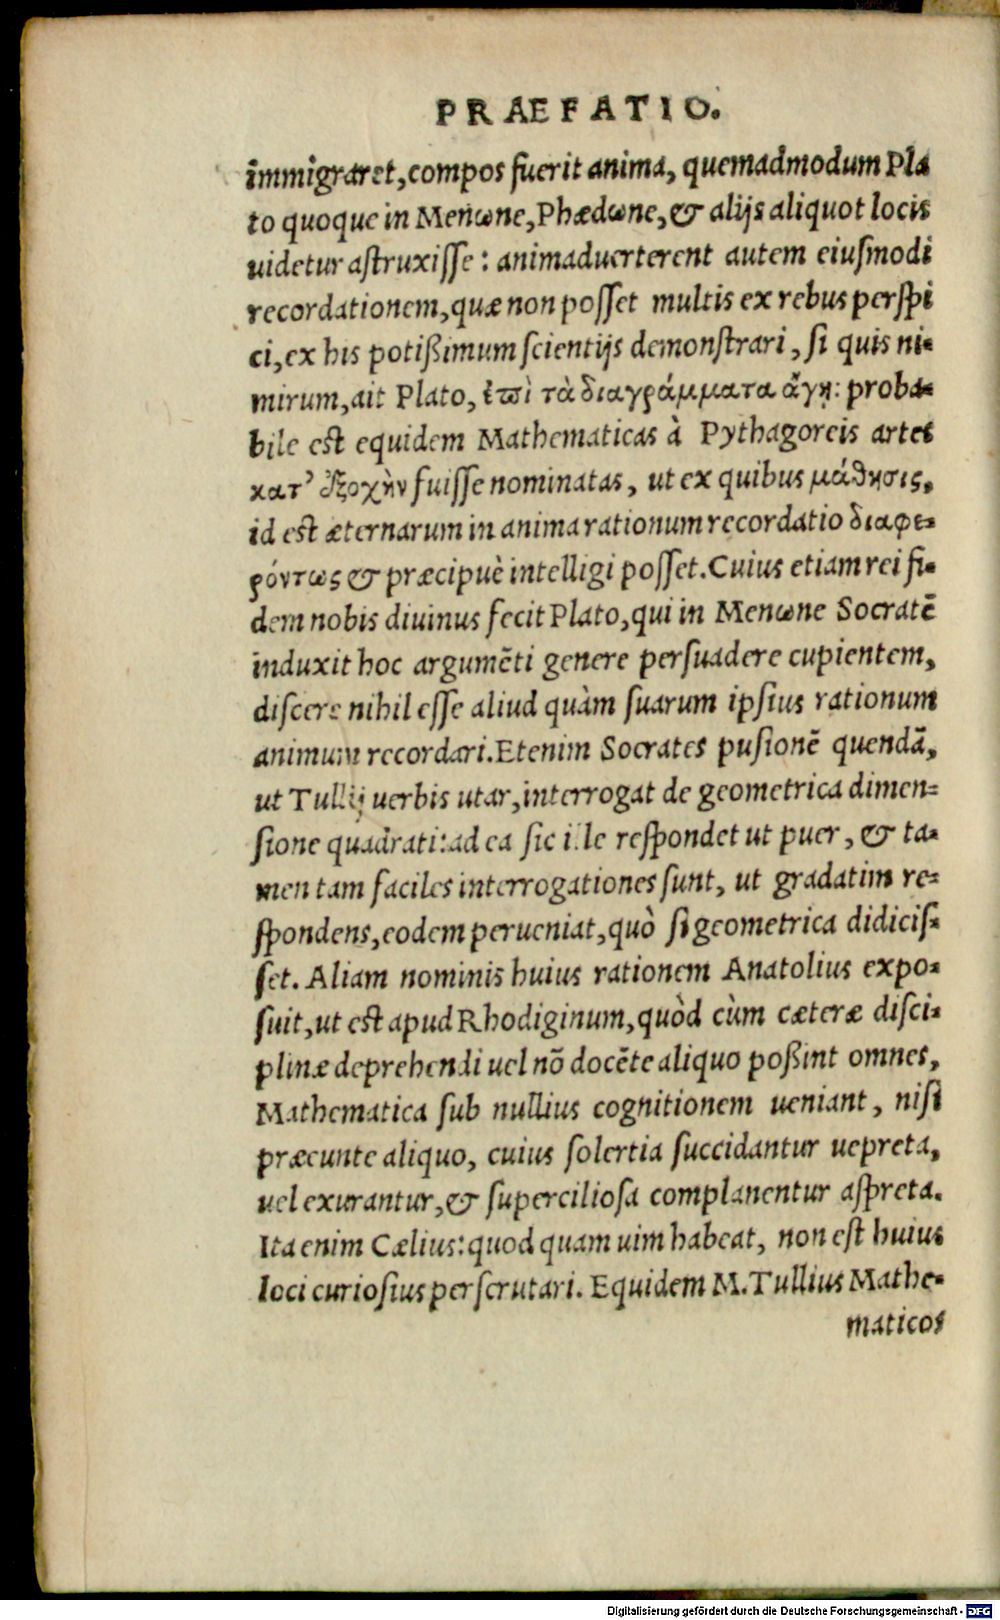 PRAEFATIO.
immigraret, compos fuerit anima, quemadmodum Pla
to quoque in Menωne, Phædωne, & alijs aliquot locis
uidetur astruxisse: animaduerterent autem eiusmodi
recordationem, quæ non posset multis ex rebus perspi
ci, ex his potißimum scientijs demonstrari, si quis ni-
mirum, ait Plato, ἐπὶ τὰ διαγράμματα ἄγῃ: proba-
bile est equidem Mathematicas à Pythagoreis artes
κατ’ ἐξοχὴν fuisse nominatas, ut ex quibus μάθησις,
id est æternarum in anima rationum recordatio διαφε-
ρόντως & præcipuè intelligi posset. Cuius etiam rei fi-
dem nobis diuinus fecit Plato, qui in Menωne Socratē
induxit hoc argumēti genere persuadere cupientem,
discere nihil esse aliud quàm suarum ipsius rationum
animum recordari. Etenim Socrates pusionē quendā,
ut Tullij uerbis utar, interrogat de geometrica dimen-
sione quadrati: ad ea sic ille respondet ut puer, & ta-
men tam faciles interrogationes sunt, ut gradatim re-
spondens, eodem perueniat, quò si geometrica didicis-
set. Aliam nominis huius rationem Anatolius expo-
suit, ut est apud Rhodiginum, quòd cùm cæteræ disci-
plinæ deprehendi uel nō docēte aliquo poßint omnes,
Mathematica sub nullius cognitionem ueniant, nisi
præeunte aliquo, cuius solertia succidantur uepreta,
uel exurantur, & superciliosa complanentur aspreta.
Ita enim Cælius: quod quam uim habeat, non est huius
loci curiosius perscrutari. Equidem M. Tullius Mathe-
maticos
Digitalisierung gefördert durch die Deutsche Forschungsgemeinschaft - DFG